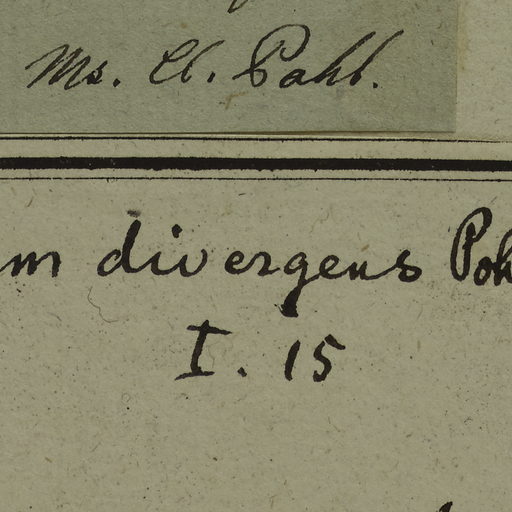 Ms. Cl. Pahl.
m divergens Poh
I. 15